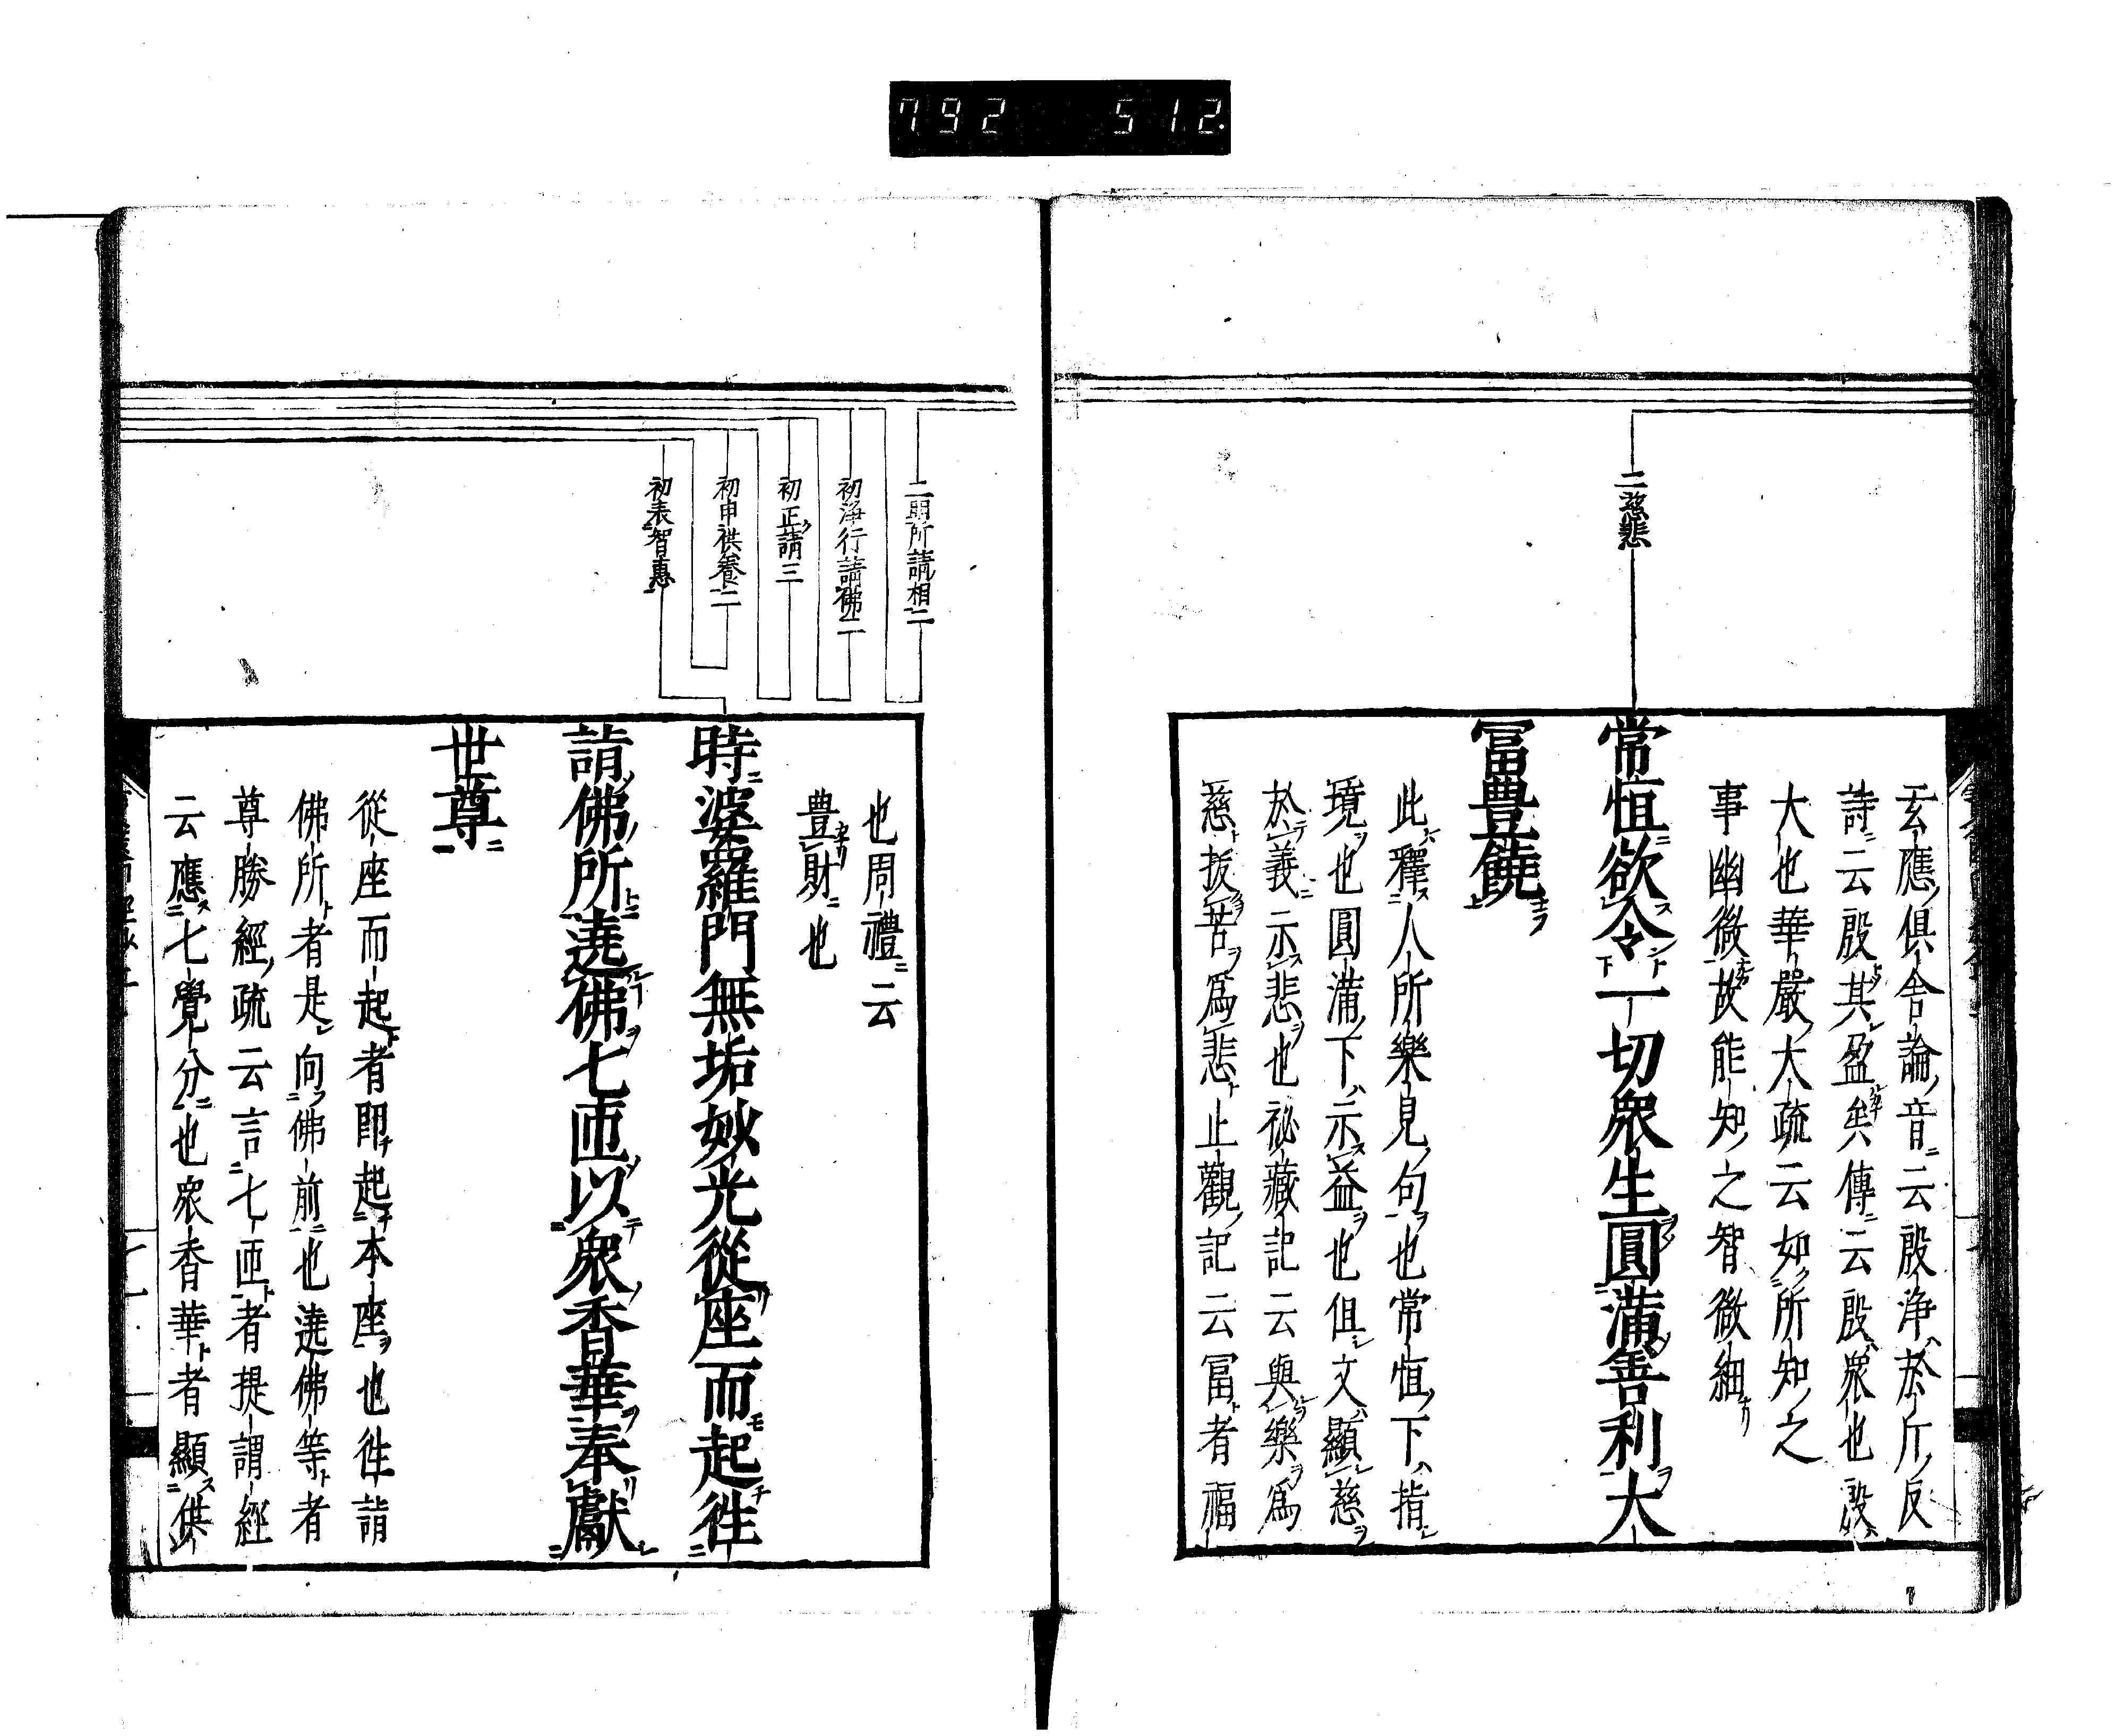 792 512.
二慈悲
玄應俱舍論音云殷浄於斤反
詩云殷其盈矣傳云殷衆也殷
大也華嚴大疏云如所知之
事幽微故能知之智微細
常恒欲令一切衆生圓滿善利大
冨豊饒
此釋人所樂見句也常恒下指
境也圓滿下示益也但文顯慈
於義示悲也祕藏記云與樂爲
慈拔苦爲悲止觀記云冨者福
二明所請相二
初海行請佛二
初正請三
初申供養二
初表智惠
也周禮云
豊財也
時婆羅門無垢妙光從座而起徃
詣佛所遶佛七匝以衆香華奉獻
世尊
從座而起者即起本座也徃詣
佛所者是向佛前也遶佛等者
尊勝經疏云言七匝者提謂經
云應七覺分也衆香華者顯供